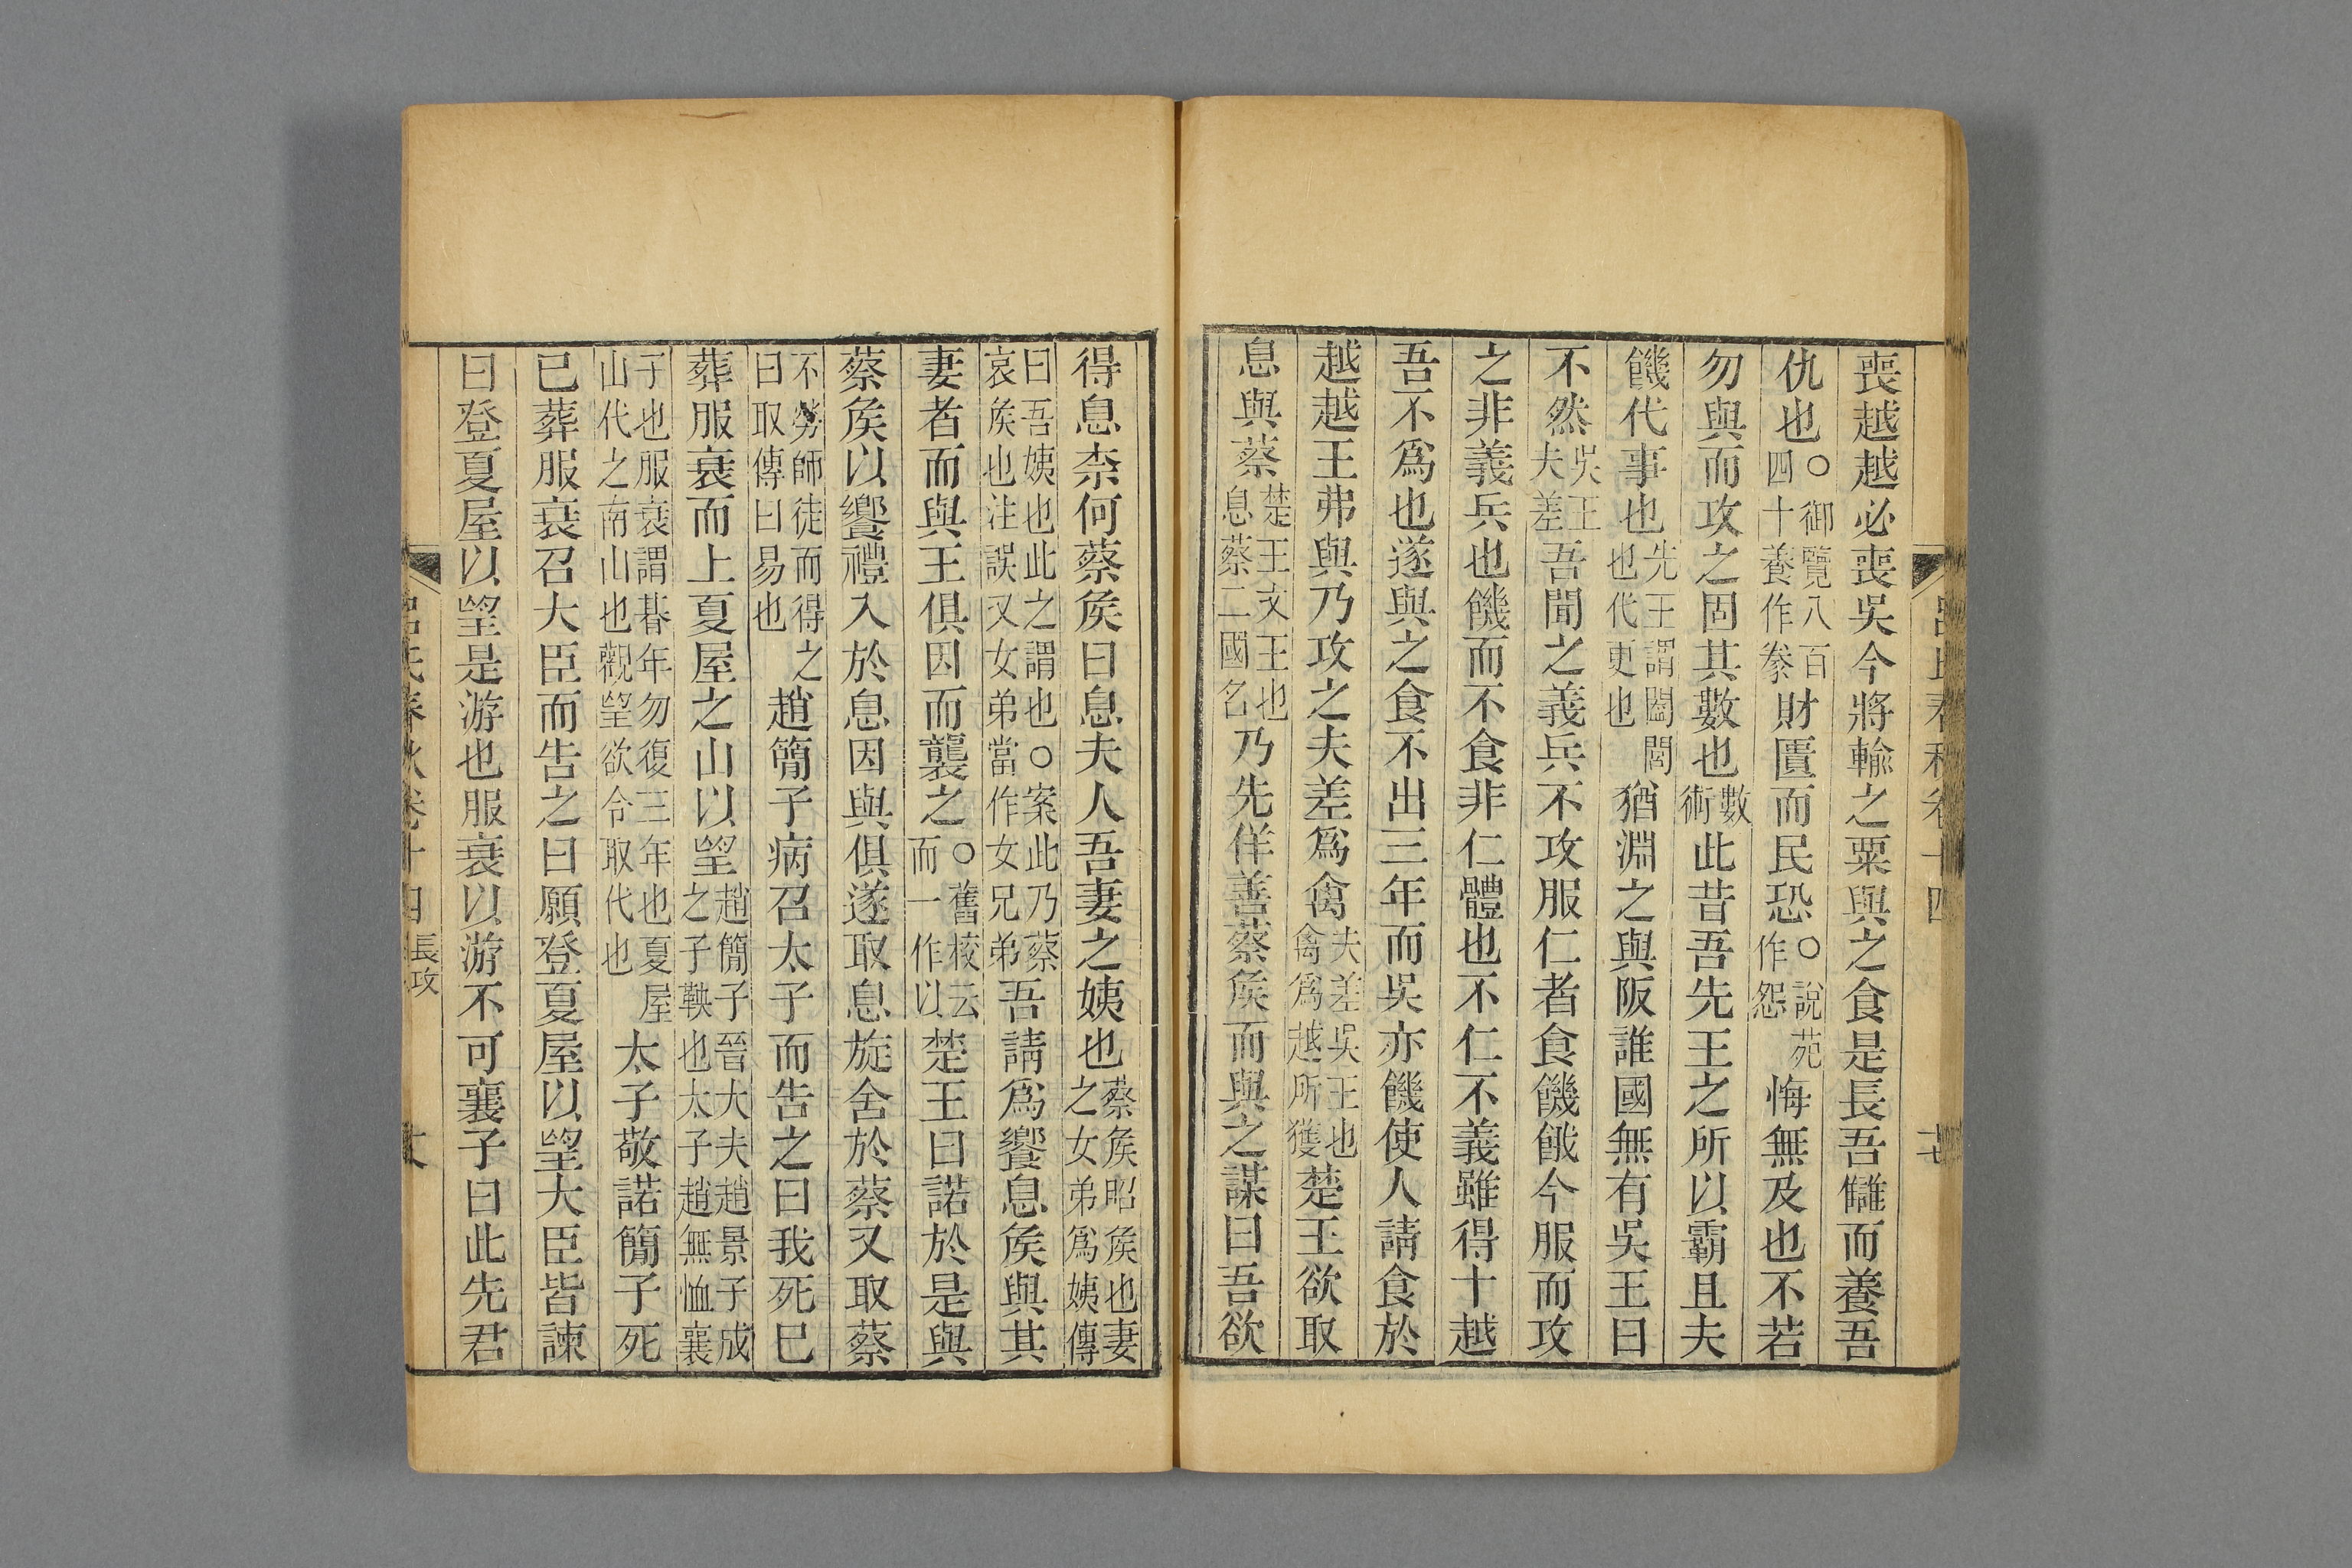 喪越越必喪吳今將輸之粟與之食是長吾讎而養吾
仇也○御覽八百四十養作豢財匱而民恐○說苑作怨悔無及也不若
勿與而攻之固其數也數術此昔吾先王之所以霸且夫
饑代事也先王謂闔閭也代更也猶淵之與阪誰國無有吳王曰
不然吳王夫差吾聞之義兵不攻服仁者食饑餓今服而攻
之非義兵也饑而不食非仁體也不仁不義雖得十越
吾不爲也遂與之食不出三年而吳亦饑使人請食於
越越王弗與乃攻之夫差爲禽夫差吳王也禽爲越所獲楚王欲取
息與蔡楚王文王也息蔡二國名乃先佯善蔡矦而與之謀曰吾欲
得息柰何蔡矦曰息夫人吾妻之姨也蔡矦昭矦也妻之女弟爲姨傳
曰吾姨也此之謂也○案此乃蔡哀矦也注誤又女弟當作女兄弟吾請爲饗息矦與其
妻者而與王俱因而襲之○舊校云而一作以楚王曰諾於是與
蔡矦以饗禮入於息因與俱遂取息旋舍於蔡又取蔡
不勞師徒而得之曰取傳曰易也趙簡子病召太子而告之曰我死已
葬服衰而上夏屋之山以望趙簡子晉大夫趙景子成之子鞅也太子趙無恤襄
子也服衰謂朞年勿復三年也夏屋山代之南山也觀望欲令取代也太子敬諾簡子死
已葬服衰召大臣而告之曰願登夏屋以望大臣皆諫
曰登夏屋以望是游也服衰以游不可襄子曰此先君
呂氏春秋卷十四 長攻